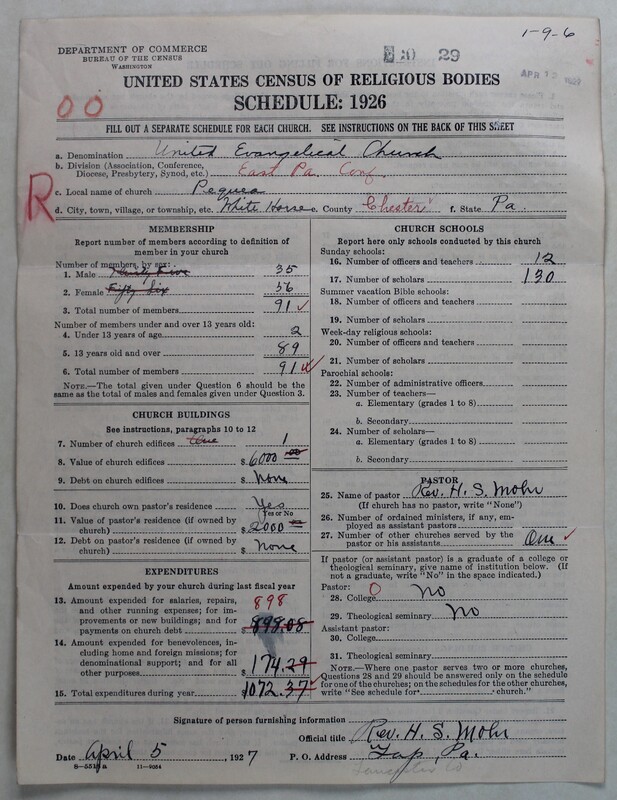 1-9-6
DEPARTMENT OF COMMERCE
BUREAU OF THE CENSUS
WASHINGTON
29
UNITED STATES CENSUS OF RELIGIOUS BODIES
SCHEDULE: 1926
OO
FILL OUT A SEPARATE SCHEDULE FOR EACH CHURCH. SEE INSTRUCTIONS ON THE BACK OF THIS SHEET
a. Denomination United Evangelical Church
b. Division (Association, Conference, Diocese, Presbytery, Synod, etc.) East Pa. Conf.
R
c. Local name of church Pequea
d. City, town, village, or township, etc. White Horse e. County Chester f. State Pa.
MEMBERSHIP
Report number of members according to definition of
member in your church
Number of members by sex:
1. Male Thirty Five 35
2. Female Fifty Six 56
3. Total number of members 91 ✓
Number of members under and over 13 years old:
4. Under 13 years of age 2
5. 13 years old and over 89
6. Total number of members 91 ✓
NOTE.—The total given under Question 6 should be
same as the total of males and females given under Question 3.
CHURCH BUILDINGS
See instructions, paragraphs 10 to 12
7. Number of church edifices One 1
8. Value of church edifices $ 6000 00
9. Debt on church edifices $ None
10. Does church own pastor's residence Yes
(Yes or No)
11. Value of pastor's residence (if owned by
church) $ 2000 00
12. Debt on pastor's residence (if owned by
church) $ None
EXPENDITURES
Amount expended by your church during last fiscal year
13. Amount expended for salaries, repairs, 898
and other running expenses; for im-
provements or new buildings; and for
payments on church debt $ 898.08
14. Amount expended for benevolences,
including home and foreign missions; for
denominational support; and for all
other purposes $ 174.29
15. Total expenditures during year $ 1072.37
CHURCH SCHOOLS
Report here only schools conducted by this church
Sunday schools:
16. Number of officers and teachers 12
17. Number of scholars 130
Summer vacation Bible schools:
18. Number of officers and teachers
19. Number of scholars
Week-day religious schools:
20. Number of officers and teachers
21. Number of scholars
Parochial schools:
22. Number of administrative officers
23. Number of teachers—
a. Elementary (grades 1 to 8)
b. Secondary
24. Number of scholars—
a. Elementary (grades 1 to 8)
b. Secondary
PASTOR
25. Name of pastor Rev. H. S. Mohr
(If church has no pastor, write "None")
26. Number of ordained ministers, if any, em-
ployed as assistant pastors
27. Number of other churches served by the
pastor or his assistants One ✓
If pastor (or assistant pastor) is a graduate of a college or
theological seminary, give name of institution below. (If
not a graduate, write "No" in the space indicated.)
Pastor: O
28. College No
29. Theological seminary No
Assistant pastor:
30. College
31. Theological seminary
NOTE.—Where one pastor serves two or more churches,
Questions 28 and 29 should be answered only on the schedule
for one of the churches; on the schedules for the other churches,
write "See schedule for church."
Signature of person furnishing information
Official title Rev. H. S. Mohr
Date April 5 1927 P. O. Address Gap, Pa.
Lancaster Co
11-9054